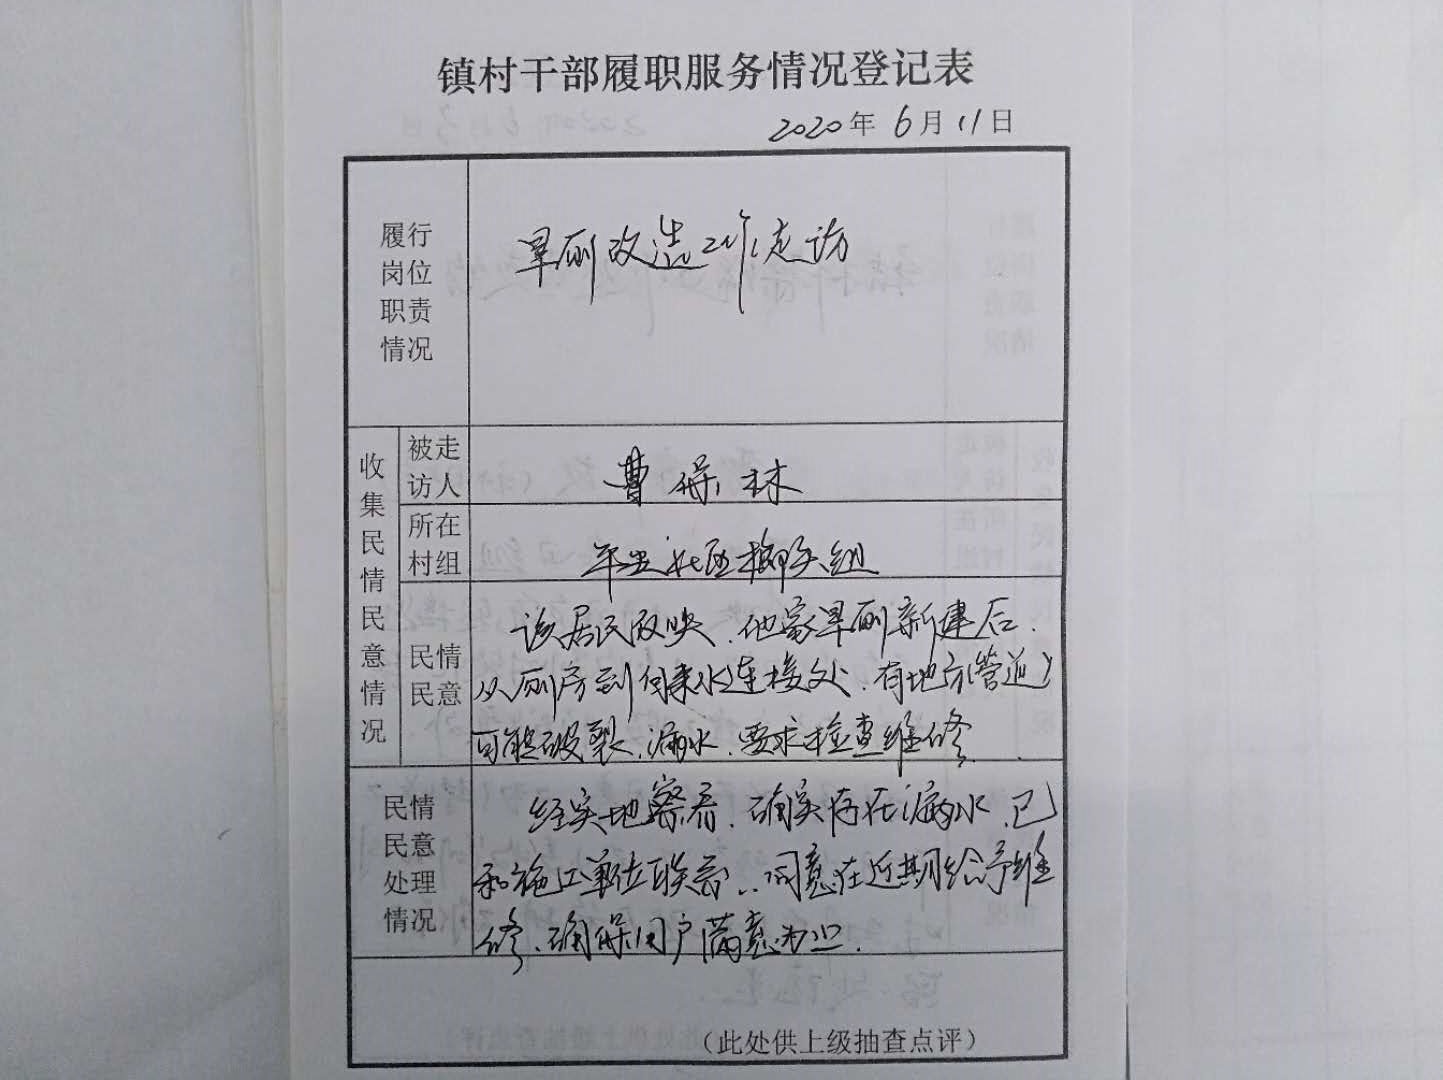 镇村干部履职服务情况登记表
2020年6月11日
履行
岗位
职责
情况
旱厕改造工作走访
收集民情民意情况
被走
访人
曹保林
所在
村组
社区柳头组
民情
民意
该居民反映,他家旱厕新建后,
从厕房到自来水连接处,有地方(管道)
可能破裂,漏水,要求检查维修.
民情
民意
处理
情况
经实地察看,确实存在漏水,已
和施工单位联系,同意在近期给予维
修,确保用户满意为止.
(此处供上级抽查点评)